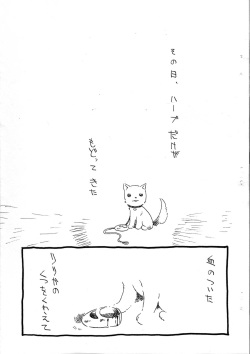 その日、ハーブだけが
もどってきた
血のついた
リリカの
くつをくわえて